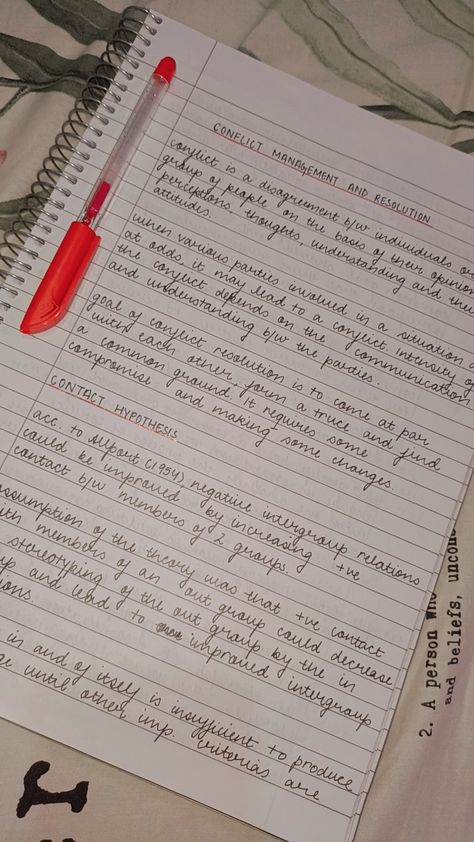 CONFLICT MANAGEMENT AND RESOLUTION
conflict is a disagreement b/w individuals or
group of people on the basis of their opinion
perceptions, thoughts, understanding and the
attitudes.
when various parties involved in a situation a
at odds, it may lead to a conflict. intensity of
the conflict depends on the communication
and understanding b/w the parties.
goal of conflict resolution is to come at par
with each other, form a truce and find
a common ground. It requires some
compromise and making some changes.
CONTACT HYPOTHESIS
acc. to Allport (1954), negative intergroup relations
could be improved by increasing +ve
contact b/w members of 2 groups.
assumption of the theory was that +ve contact
with members of an out group could decrease
stereotyping of the out group by the in
up and lead to improved intergroup
ions.
in and of itself is insufficient to produce
ge until other imp. criterias are
2. A person who
and beliefs, uncon
r